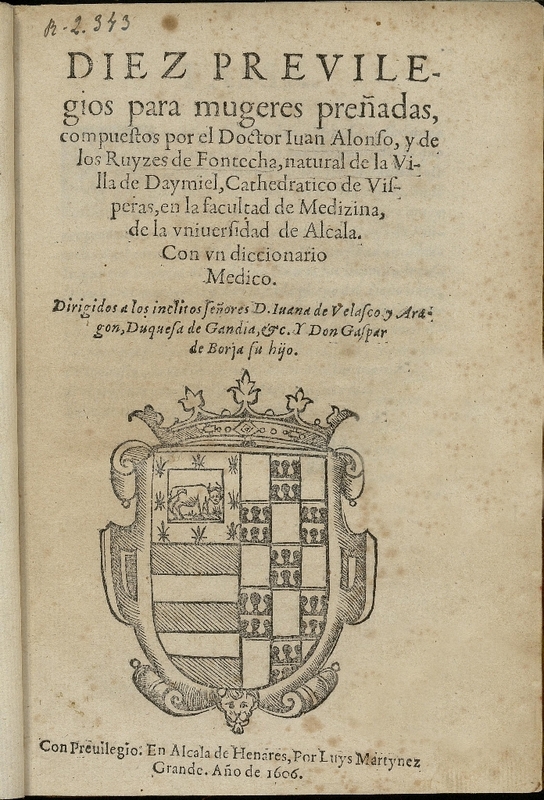 R-2.343
DIEZ PREVILE-
gios para mugeres preñadas,
compueſtos por el Doctor Iuan Alonſo, y de
los Ruyzes de Fontecha, natural de la Vi-
lla de Daymiel, Cathedratico de Viſ-
peras, en la facultad de Medizina,
de la vniuerſidad de Alcala.
Con vn diccionario
Medico.
Dirigidos a los inclitos ſeñores D. Iuana de Velaſco y Ara-
gon, Duqueſa de Gandia, &c. Y Don Gaſpar
de Borja ſu hijo.
Con Preuilegio. En Alcala de Henares, Por Luys Martynez
Grande. Año de 1606.